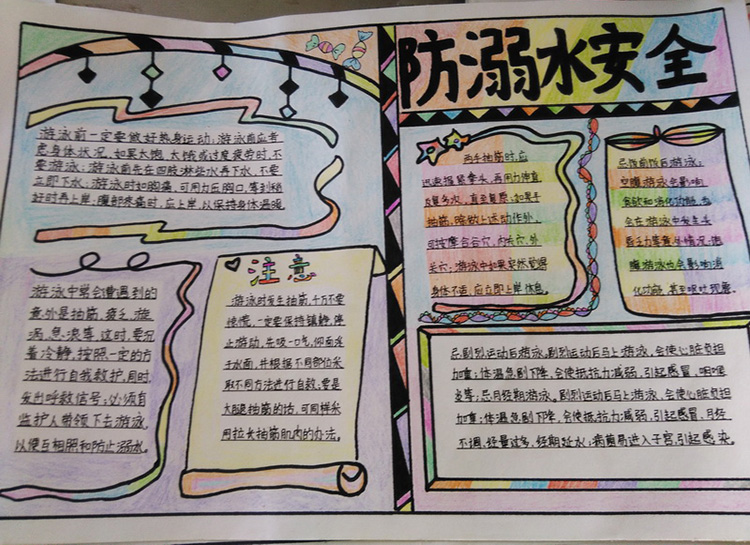 防溺水安全
游泳前一定要做好热身运动；游泳前应考
虑身体状况，如果太饱、太饿或过度疲劳时，不
要游泳；游泳前先在四肢淋些水再下水，不要
立即下水；游泳时如胸痛，可用力压胸口，等到稍
好时再上岸；腹部疼痛时，应上岸，以保持身体温暖
游泳中常会遭遇到的
意外是抽筋、疲乏、旋
涡、急浪等，这时，要沉
着冷静，按照一定的方
法进行自我救护，同时，
发出呼救信号；必须有
监护人带领下去游泳，
以便互相照和防止溺水。
注意
游泳时发生抽筋，千万不要
惊慌，一定要保持镇静，停
止游动，先吸一口气，仰面浮
于水面，并根据不同部位采
取不同方法进行自救；要是
大腿抽筋的话，可同样采
用拉长抽筋肌肉的办法。
两手抽筋时，应
迅速握紧拳头，再用力伸直
反复多次，直至复原；如果手
抽筋，除做上述动作外，
可按摩合谷穴、内关穴、外
关穴；游泳中如果突然觉得
身体不适，应立即上岸休息。
忌饭前饭后游泳；
空腹游泳会影响
食欲和消化功能，也
会在游泳中发生头
昏乏力等意外情况；饱
腹游泳也会影响消
化功能，甚至呕吐现象。
忌剧烈运动后游泳，剧烈运动后马上游泳，会使心脏负担
加重；体温急剧下降，会使抵抗力减弱，引起感冒、咽喉
炎等；忌月经期游泳。剧烈运动后马上游泳，会使心脏负担
加重；体温急剧下降，会使抵抗力减弱，引起感冒、月经
不调、经量过多、经期延长；病菌易进入子宫，引起感染。